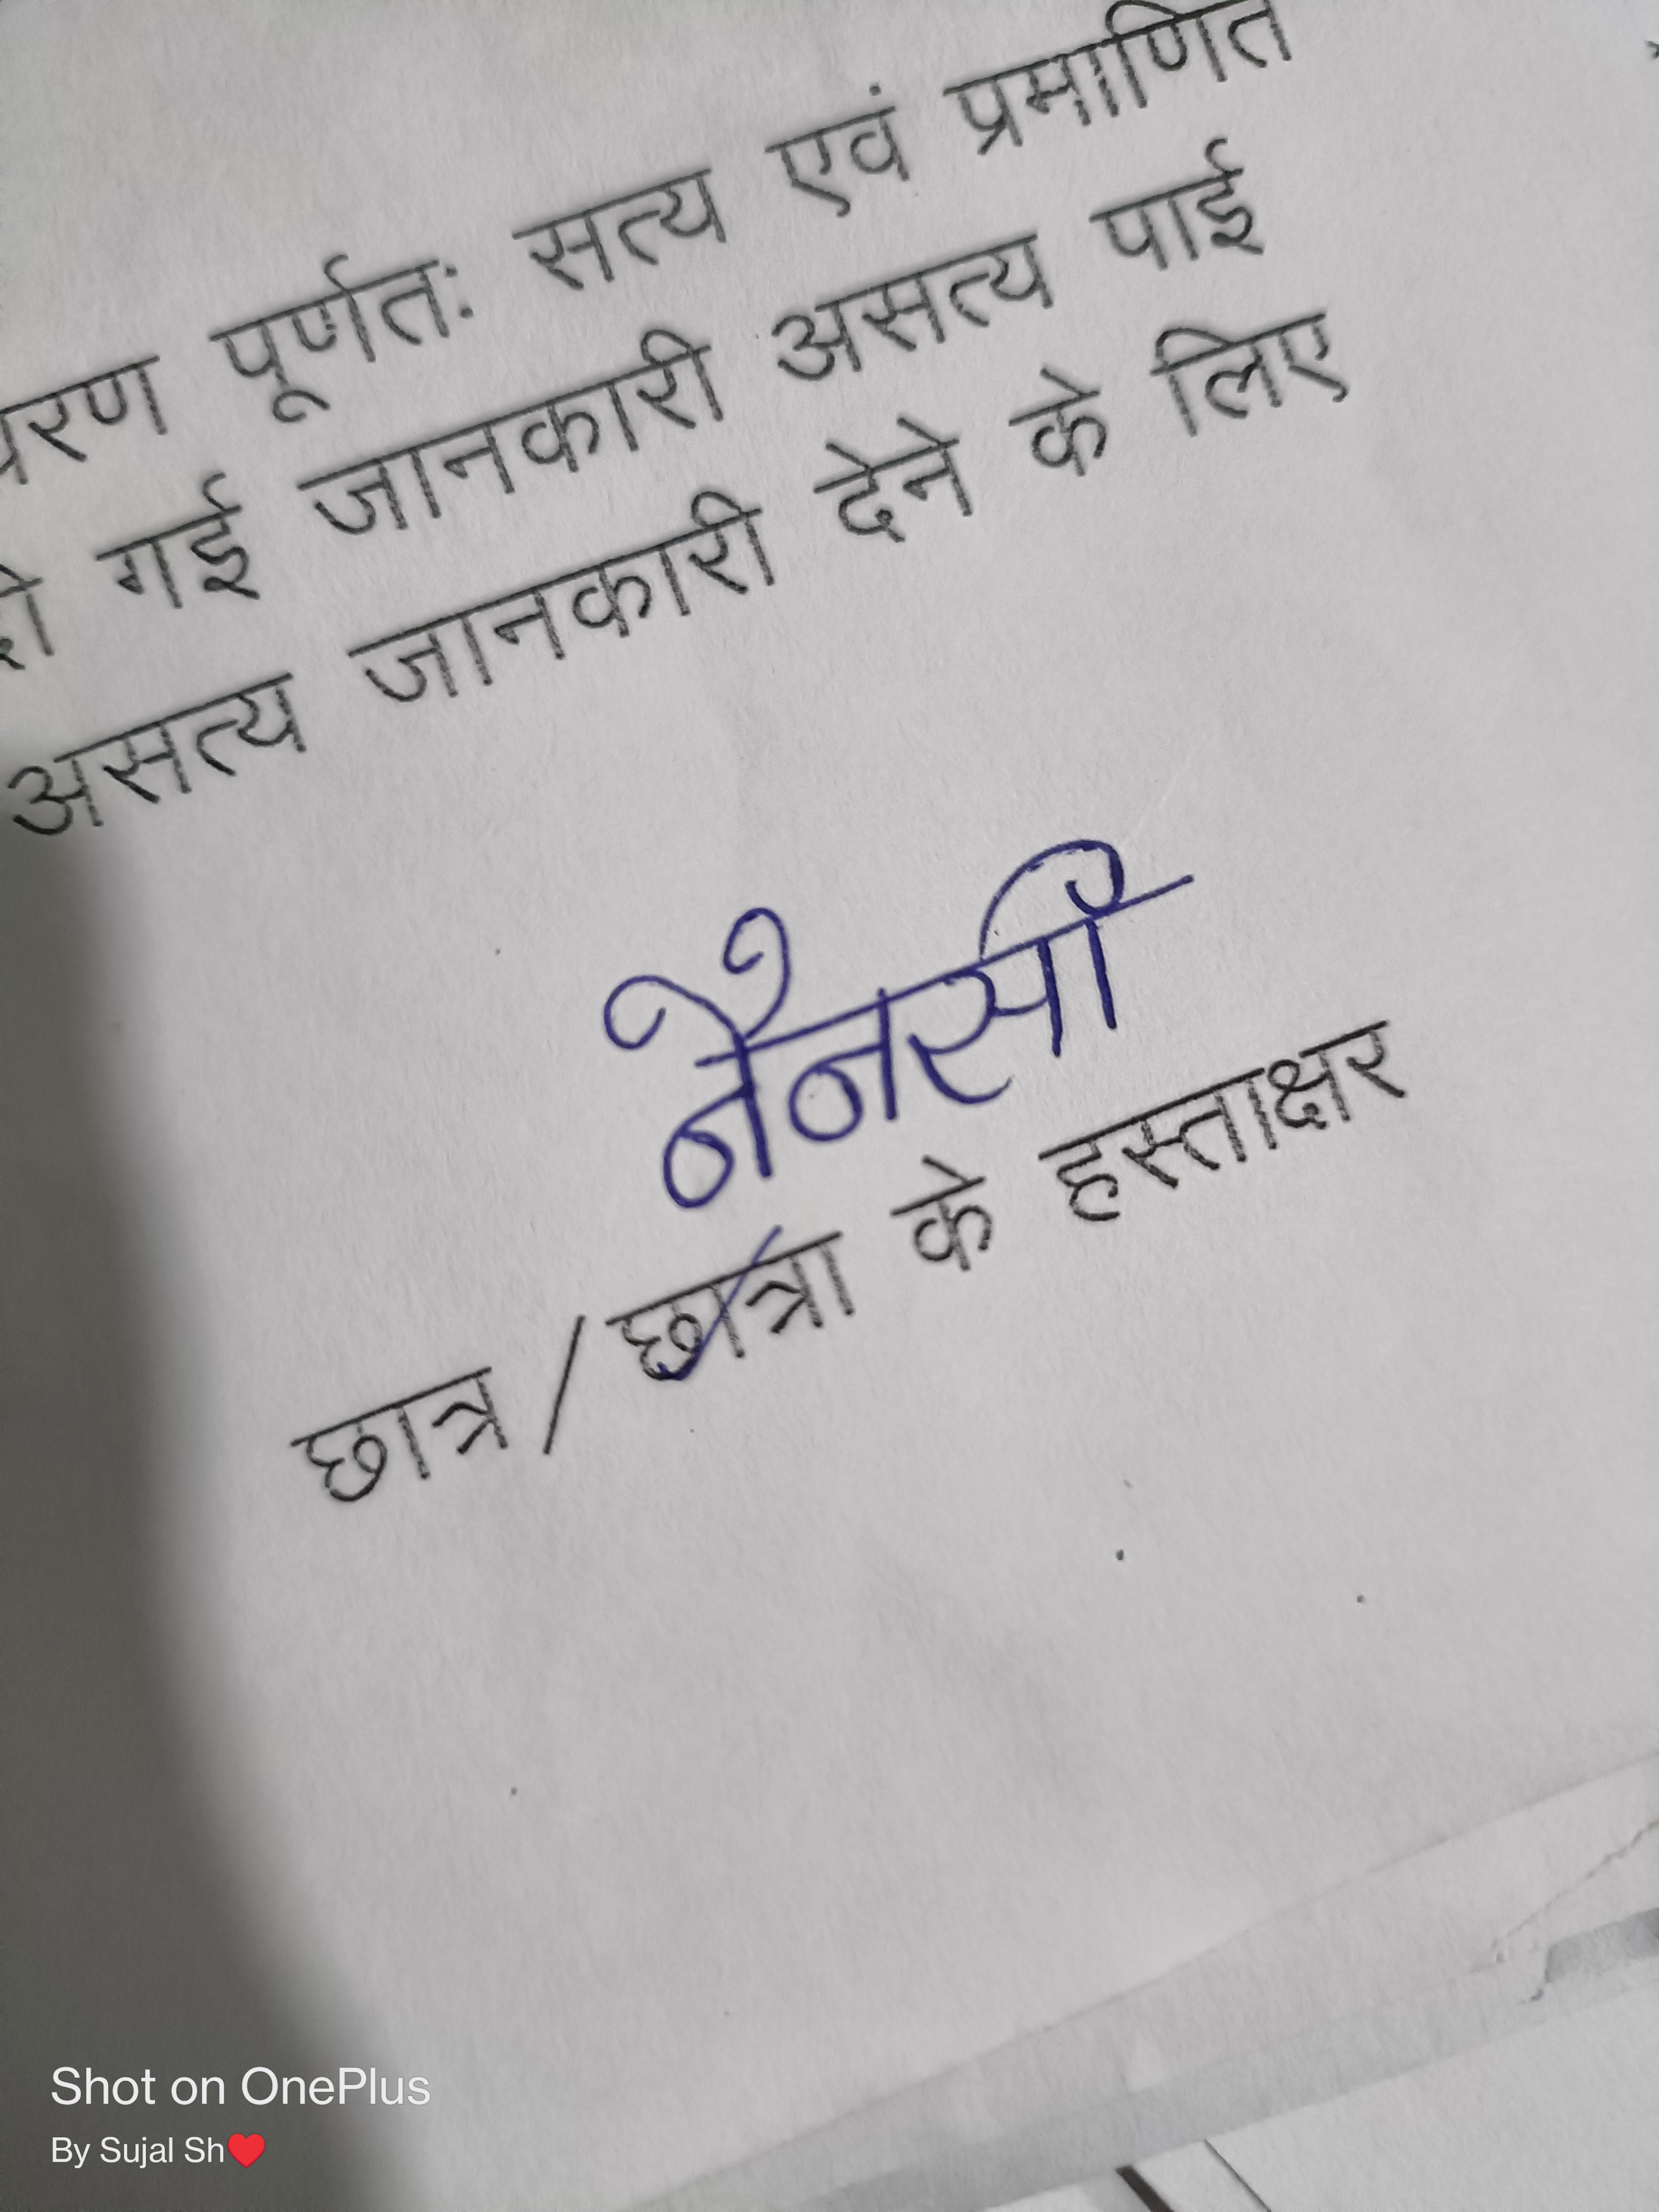 पूर्णतः सत्य एवं प्रमाणित
गई जानकारी असत्य पाई
असत्य जानकारी देने के लिए
नैनसी
छात्र / छात्रा के हस्ताक्षर
Shot on OnePlus
By Sujal Sh❤️